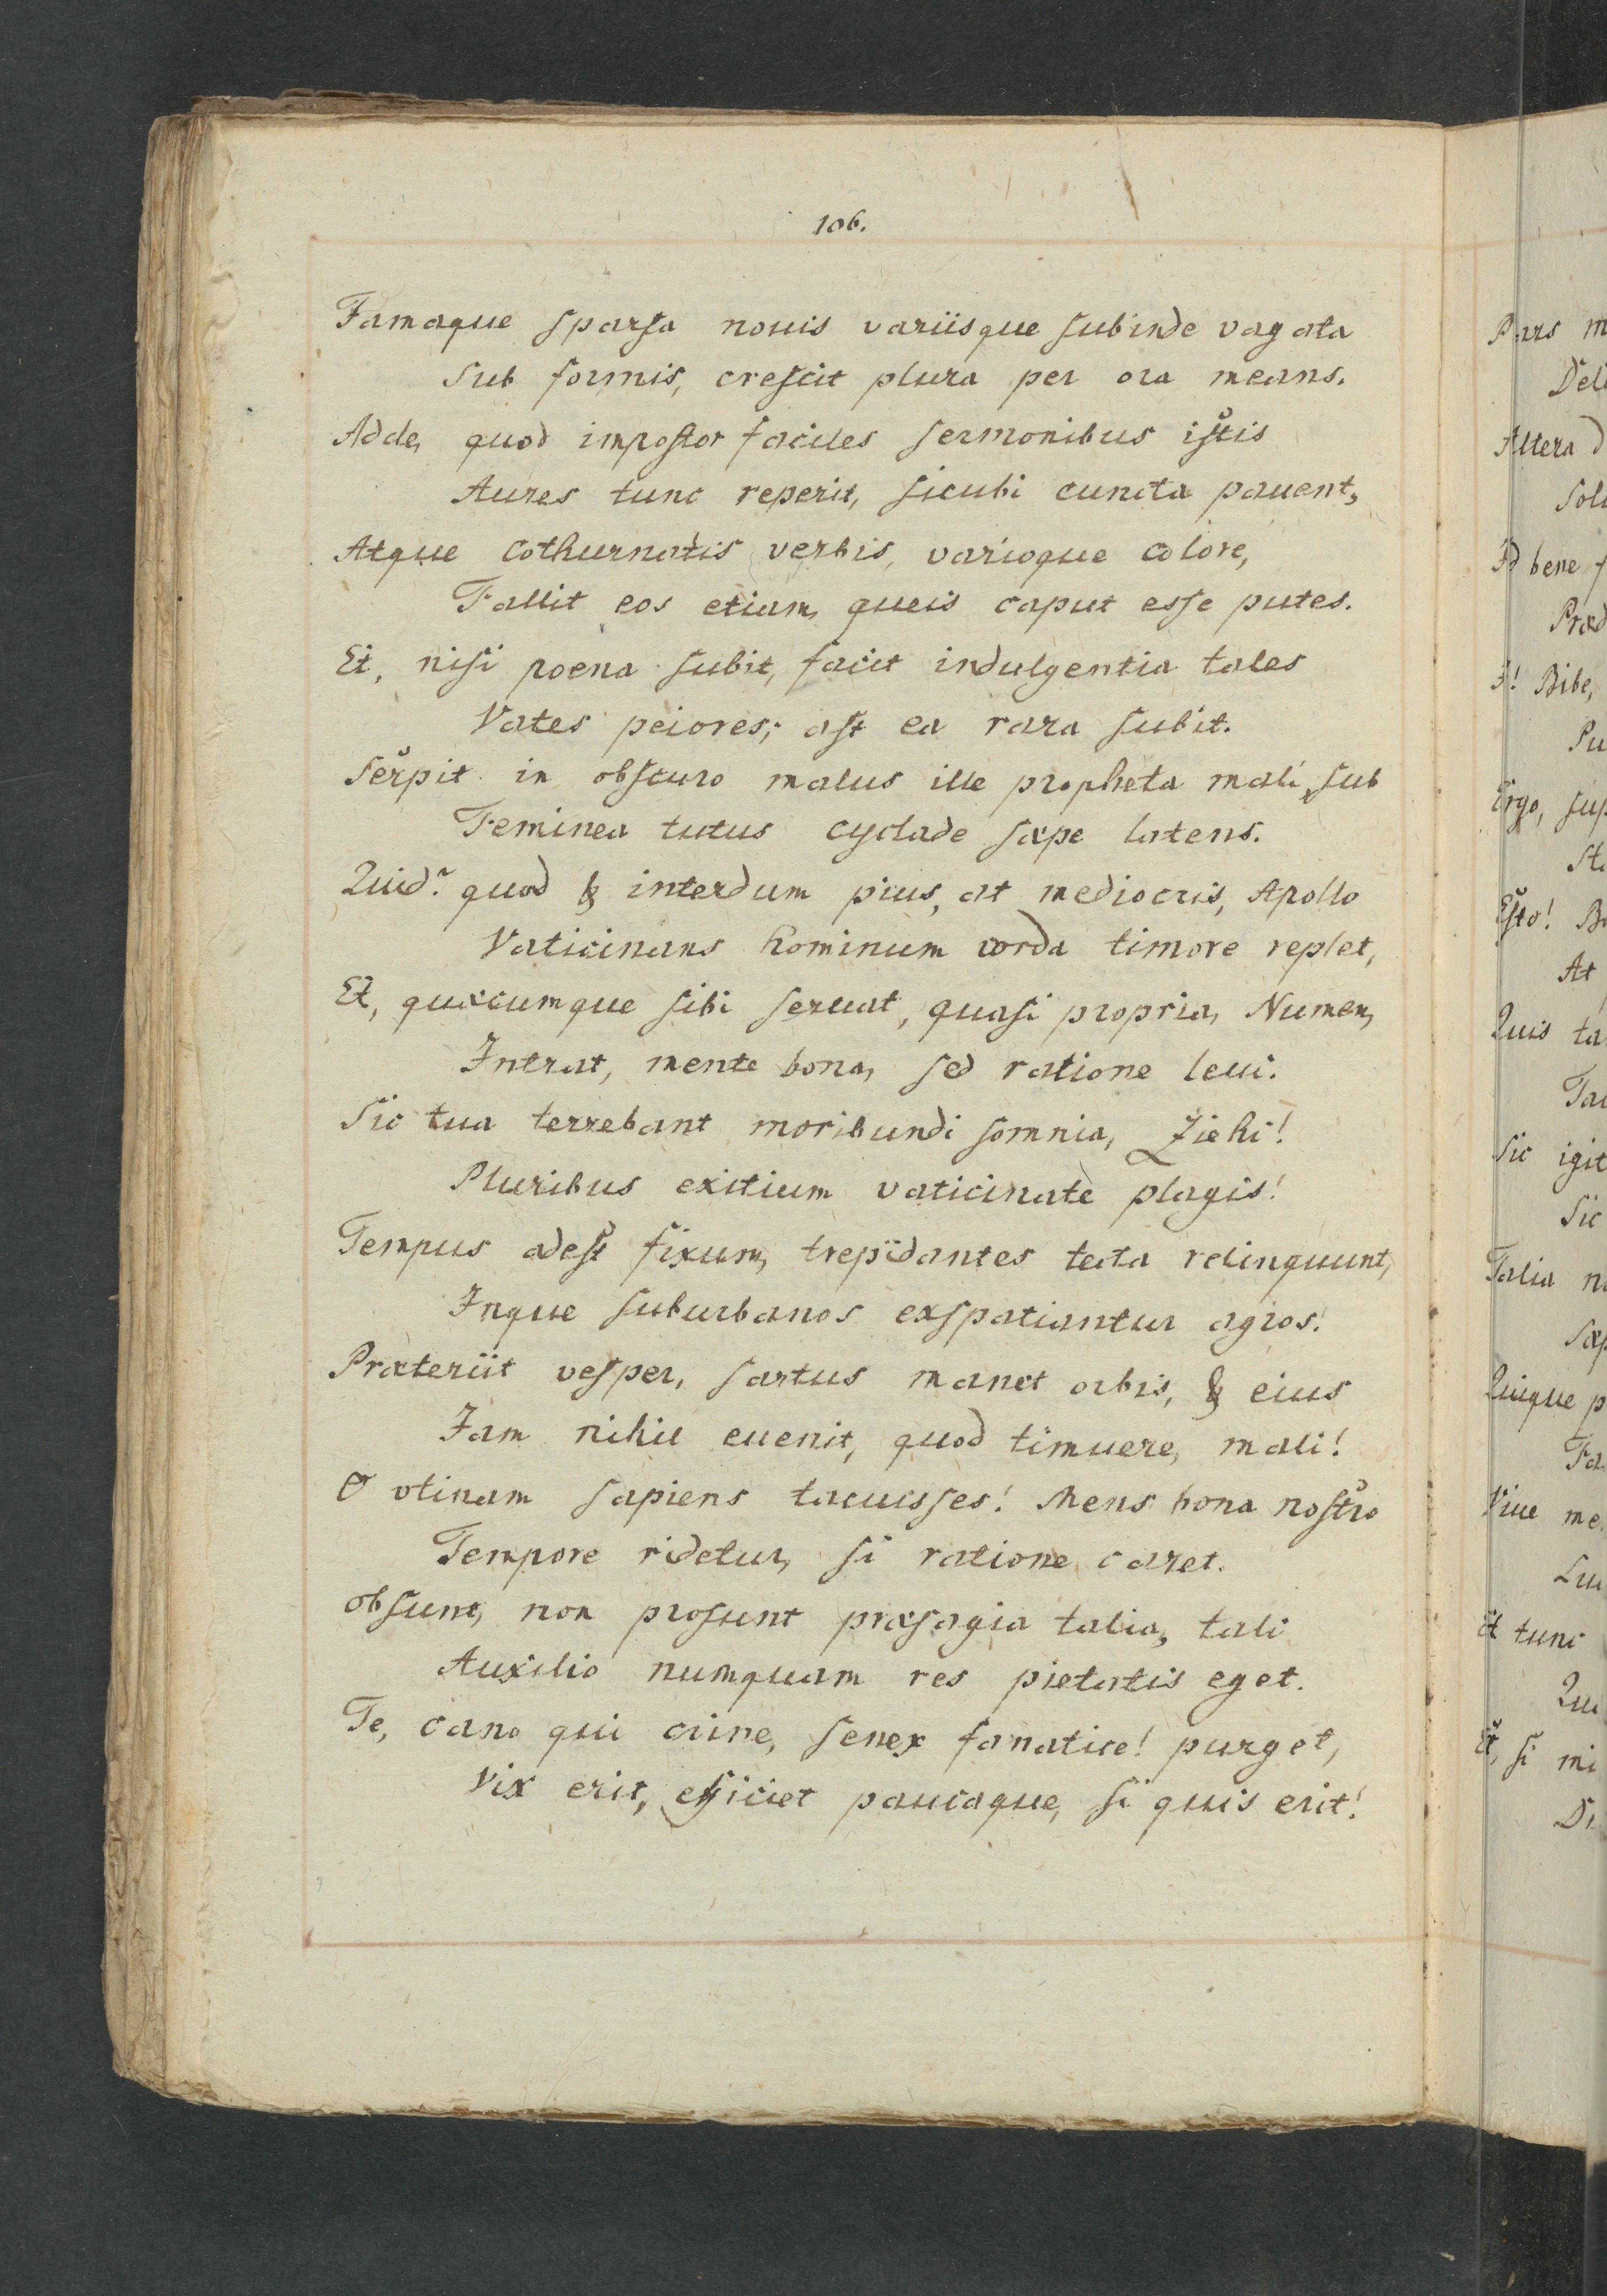 106.
Famaque sparsa nouis variisque subinde vagata
Sub formis, crescit plura per ora means.
Adde, quod impostor faciles sermonibus istis
Aures tunc reperit, sicubi cuncta pauent,
Atque cothurnatis verbis, varioque colore,
Fallit eos etiam, queis caput esse putes.
Et, nisi poena subit, facit indulgentia tales
Vates peiores; ast ea rara subit.
Serpit in obscuro malus ille propheta mali, sub
Feminea tutus cyclade sæpe latens.
Quid? quod & interdum pius, at mediocris, Apollo
Vaticinans hominum corda timore replet,
Et, quæcumque sibi seruat, quasi propria, Numen,
Intrat, mente bona, sed ratione leui.
Sic tua terrebant moribundi somnia, Ziehi!
Pluribus exitium vaticinate plagis!
Tempus adest fixum, trepidantes tecta relinquunt,
Inque suburbanos exspatiantur agros.
Præteriit vesper, sartus manet orbis, & eius
Jam nihil euenit, quod timuere, mali!
O vtinam sapiens tacuisses! Mens bona nostro
Tempore ridetur, si ratione caret.
Obsunt, non prosunt præsagia talia, tali
Auxilio numquam res pietatis eget.
Te, cano qui crine, senex fanatice! purget,
Vix erit, efficiet paucaque, si quis erit!
Pars m
Altera d
Id bene f
Præd
I! Bibe,
Pu
Ergo, sup
Esto!
At
Quis ta
Sic igit
Sic
Talia n
Sæp
Quique p
Fa
Viue me
Et tunc
Et, si mi